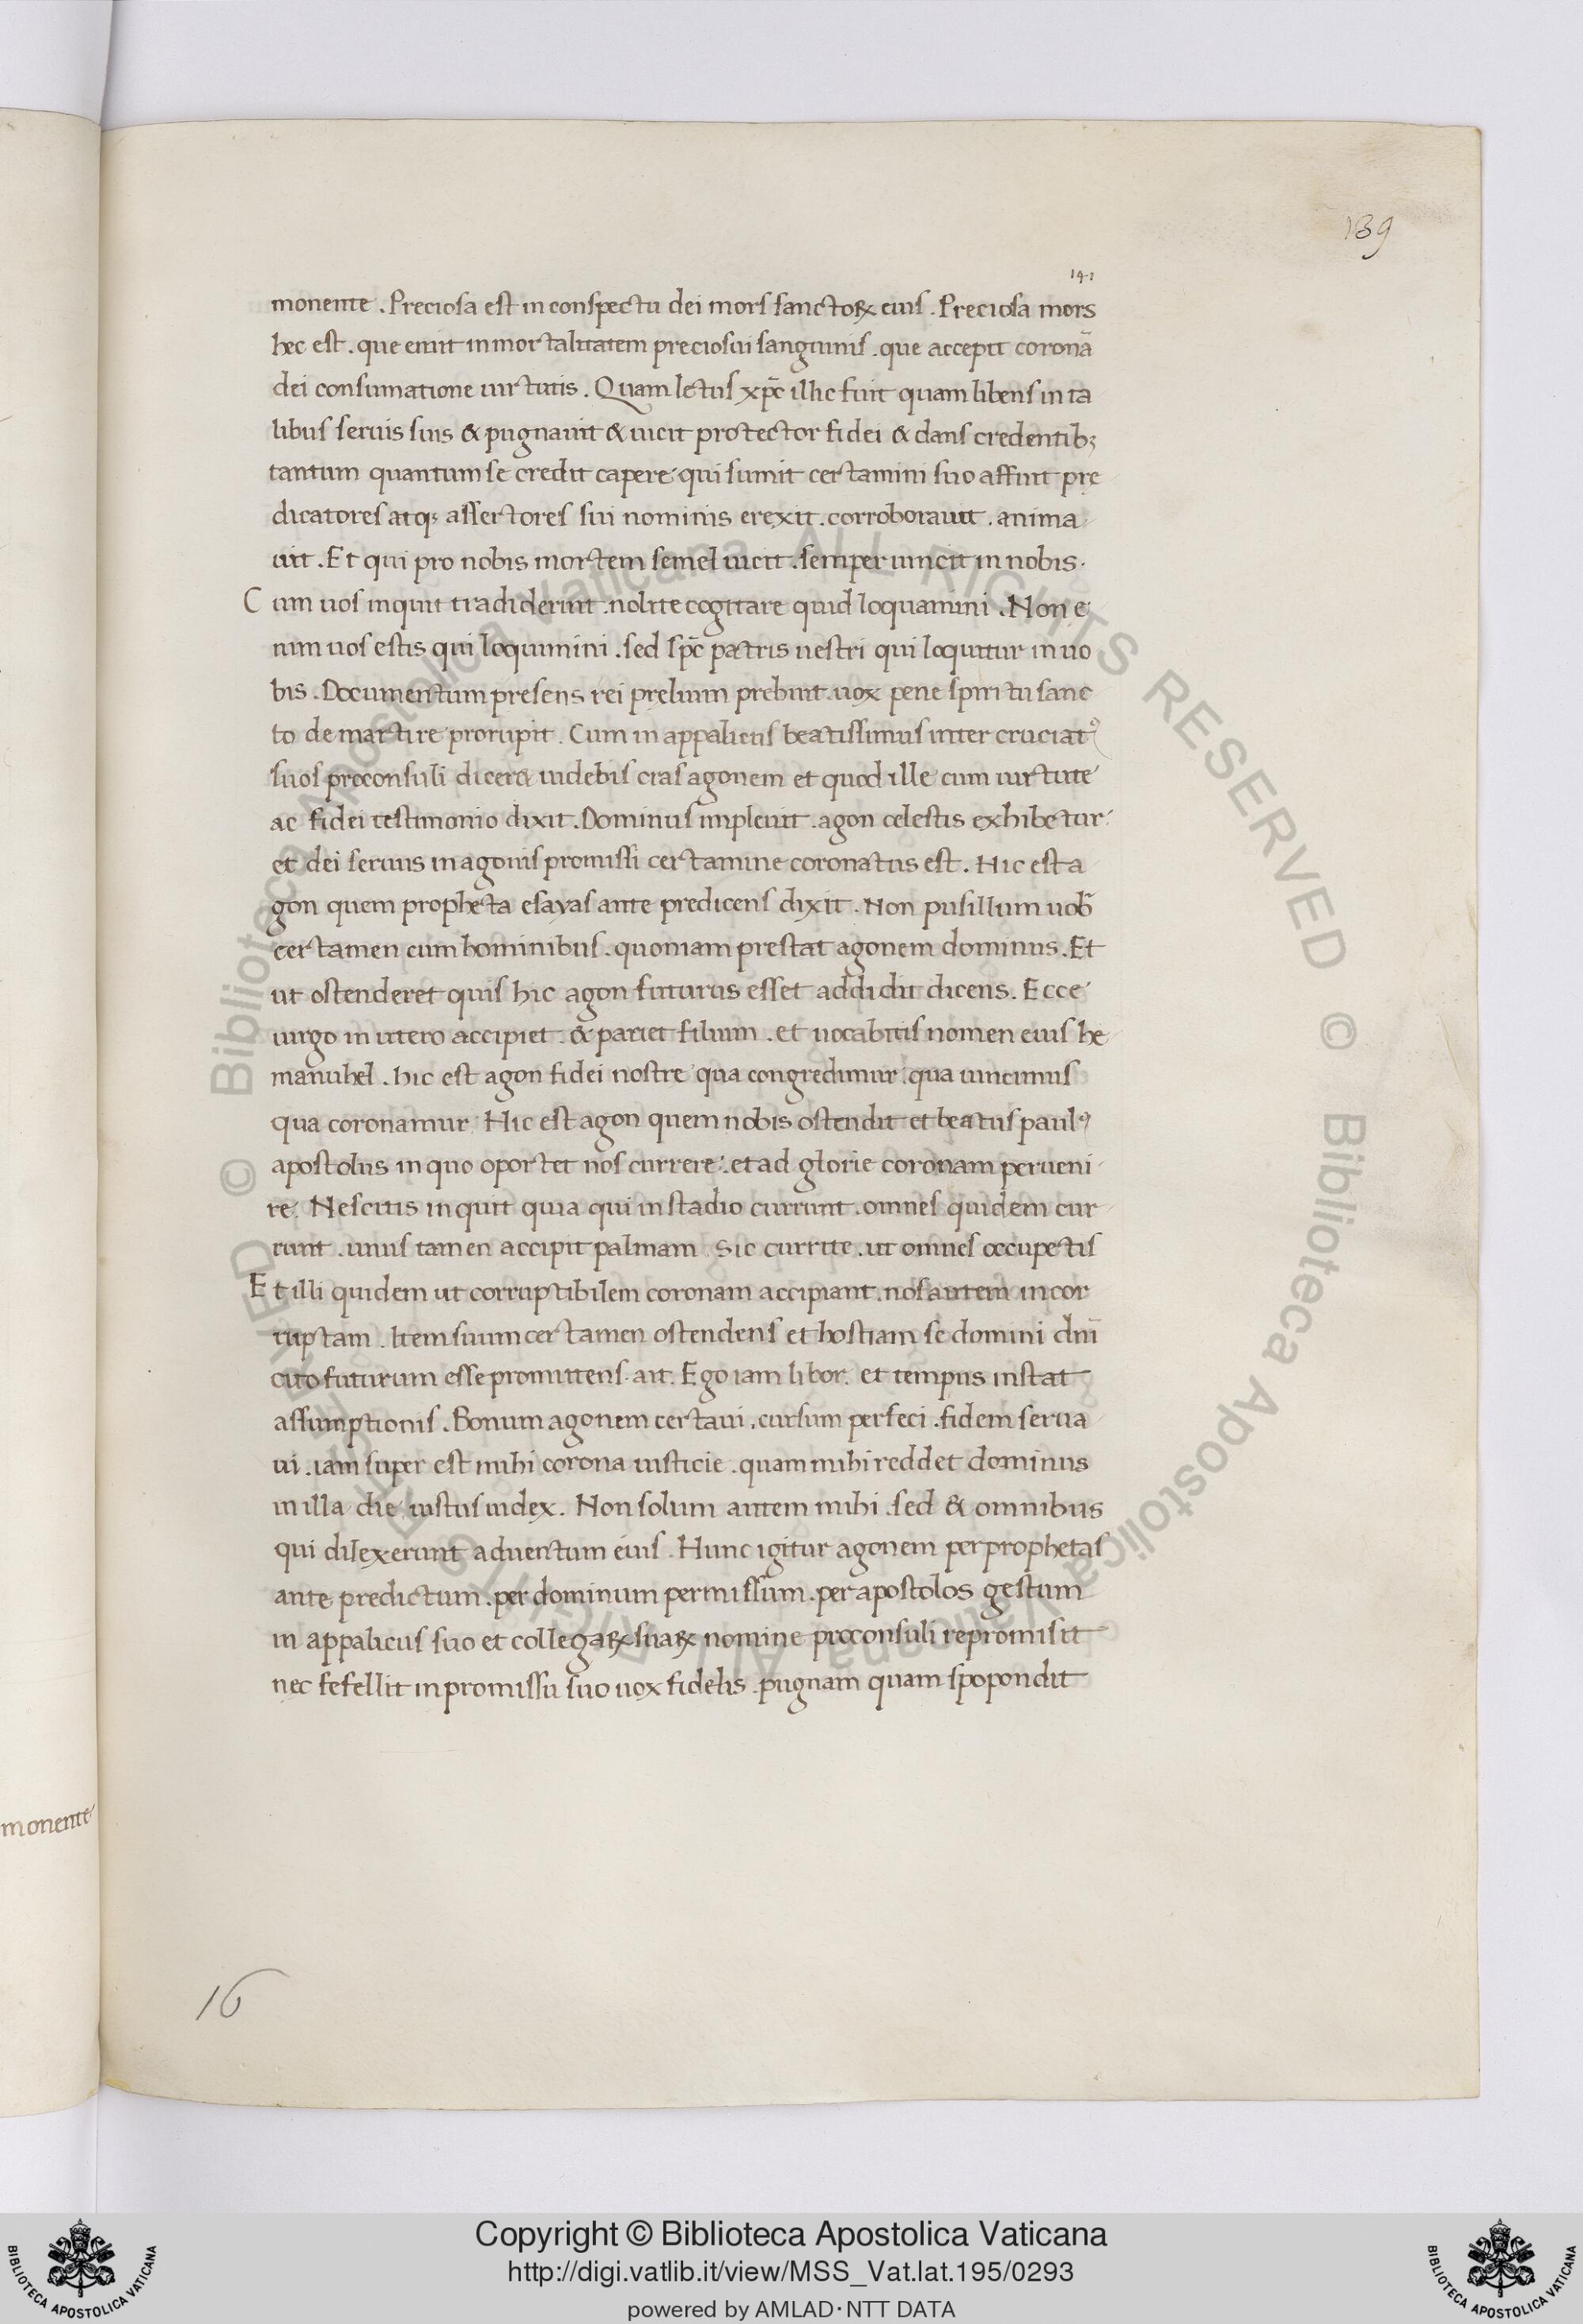 139
141
monente. Preciosa est in conspectu dei mors sanctoꝝ eius. Preciosa mors
hec est. que emit inmortalitatem preciosui sanguinis. que accepit coronā
dei consumatione uirtutis. Quam letus xp̄c illic fuit quam libens in ta
libus seruis suis & pugnauit & uicit protector fidei & dans credentib;
tantum quantum se credit capere qui sumit certamini suo affuit prę
dicatores atq; assertores sui nominis erexit. corroborauit. anima
uit. Et qui pro nobis mortem semel uicit. semper uincit in nobis.
Cum uos inquit tradiderint. nolite cogitare quid loquamini. Non e
nim uos estis qui loquimini. sed sp̄c patris uestri qui loquitur in uo
bis. Documentum presens rei prelium prebuit. uox pene spiritu sanc
to de martire prorupit. Cum in appalicus beatissimus inter cruciatꝰ
suos proconsuli dicer& uidebis cras agonem et quod ille cum uirtute
ac fidei testimonio dixit. Dominus impleuit. agon celestis exhibetur:
et dei seruus in agonis promissi certamine coronatus est. Hic est a
gon quem propheta esayas ante predicens dixit. Non pusillum uob̄
certamen cum hominibus. quoniam prestat agonem dominus. Et
ut ostenderet quis hic agon futurus esset addidit dicens. Ecce
uirgo in utero accipiet. & pariet filium. et uocabitis nomen eius he
manuhel. hic est agon fidei nostre qua congredimur: qua uincimus
qua coronamur. Hic est agon quem nobis ostendit et beatus paulꝰ
apostolus in quo oportet nos currere: et ad glorie coronam perueni
re. Nescitis inquit quia qui in stadio currunt. omnes quidem cur
runt. unus tamen accipit palmam. Sic currite. ut omnes occupetis
Et illi quidem ut corruptibilem coronam accipiant. nos autem incor
ruptam. Item suum certamen ostendens et hostiam se domini dn̄i
cito futurum esse promittens. ait. Ego iam libor. et tempus instat
assumptionis. Bonum agonem certaui. cursum perfeci. fidem serua
ui. iam super est mihi corona iusticie. quam mihi reddet dominus
in illa die iustus iudex. Non solum autem mihi. sed & omnibus
qui dilexerunt aduentum eius. Hunc igitur agonem per prophetas
ante predictum. per dominum permissum. per apostolos gestum
in appalicus suo et collegaꝝ suaꝝ nomine proconsuli repromisit
nec fefellit in promissu suo uox fidelis. pugnam quam spopondit
monente
16
© Biblioteca Apostolica Vaticana ALL RIGHTS RESERVED © Biblioteca Apostolica Vaticana ALL RIGHTS RESERVED
BIBLIOTECA APOSTOLICA VATICANA
Copyright © Biblioteca Apostolica Vaticana
http://digi.vatlib.it/view/MSS_Vat.lat.195/0293
powered by AMLAD·NTT DATA
BIBLIOTECA APOSTOLICA VATICANA